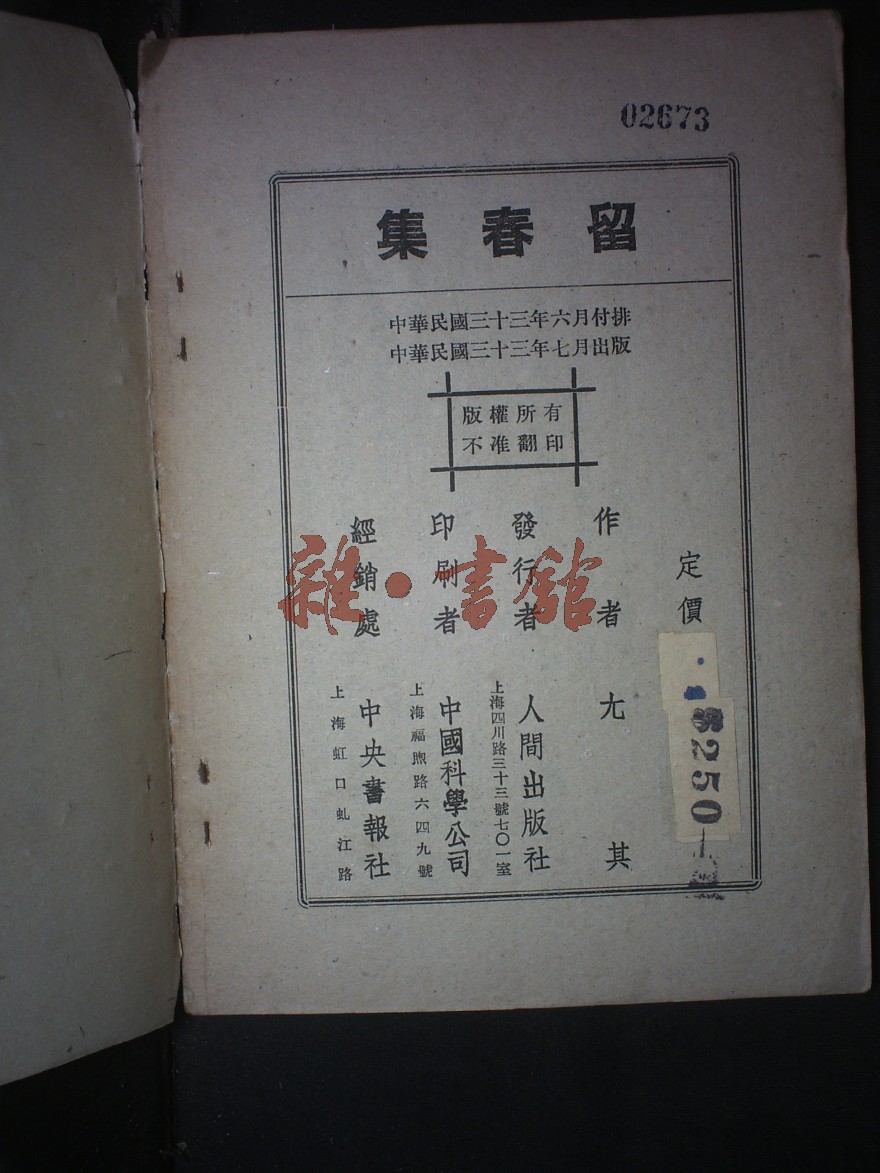 02673
留春集
中華民國三十三年六月付排
中華民國三十三年七月出版
版權所有
不准翻印
定價
250
作者 尢其
發行者 人間出版社
上海四川路三十三號七〇一室
印刷者 中國科學公司
上海福煦路六四九號
經銷處 中央書報社
上海虹口虬江路
雜·書館